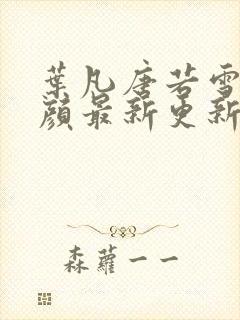 葉凡唐若雪
顏最新更新
森蘿一一